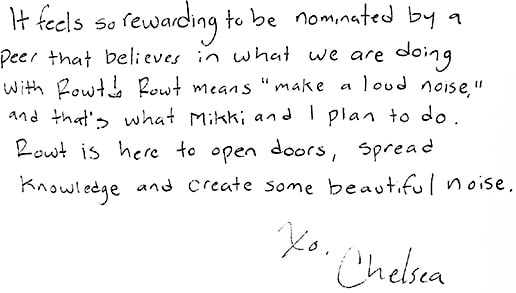 It feels so rewarding to be nominated by a
peer that believes in what we are doing
with Rowt! Rowt means "make a loud noise,"
and that's what Mikki and I plan to do.
Rowt is here to open doors, spread
knowledge and create some beautiful noise.
Xo,
Chelsea